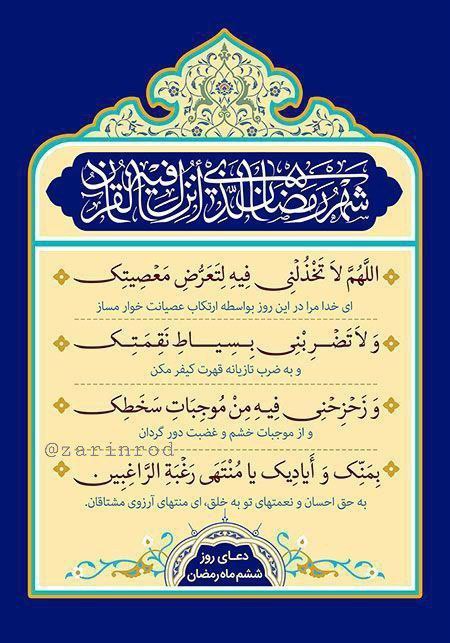 شَهْرُ رَمَضَانَ الَّذِي أُنْزِلَ فِيهِ الْقُرْآنُ
اللَّهُمَّ لاَ تَخْذُلْنِی فِیهِ لِتَعَرُّضِ مَعْصِیَتِک
ای خدا مرا در این روز بواسطه ارتکاب عصیانت خوار مساز
وَ لاَ تَضْرِبْنِی بِسِیَاطِ نَقِمَتِک
و به ضرب تازیانه قهرت کیفر مکن
وَ زَحْزِحْنِی فِیهِ مِنْ مُوجِبَاتِ سَخَطِک
و از موجبات خشم و غضبت دور گردان
@zarinrod
بِمَنِّک وَ أَیَادِیک یا مُنْتَهَی رَغْبَةِ الرَّاغِبِین
به حق احسان و نعمتهای تو به خلق، ای منتهای آرزوی مشتاقان.
دعای روز
ششم ماه رمضان